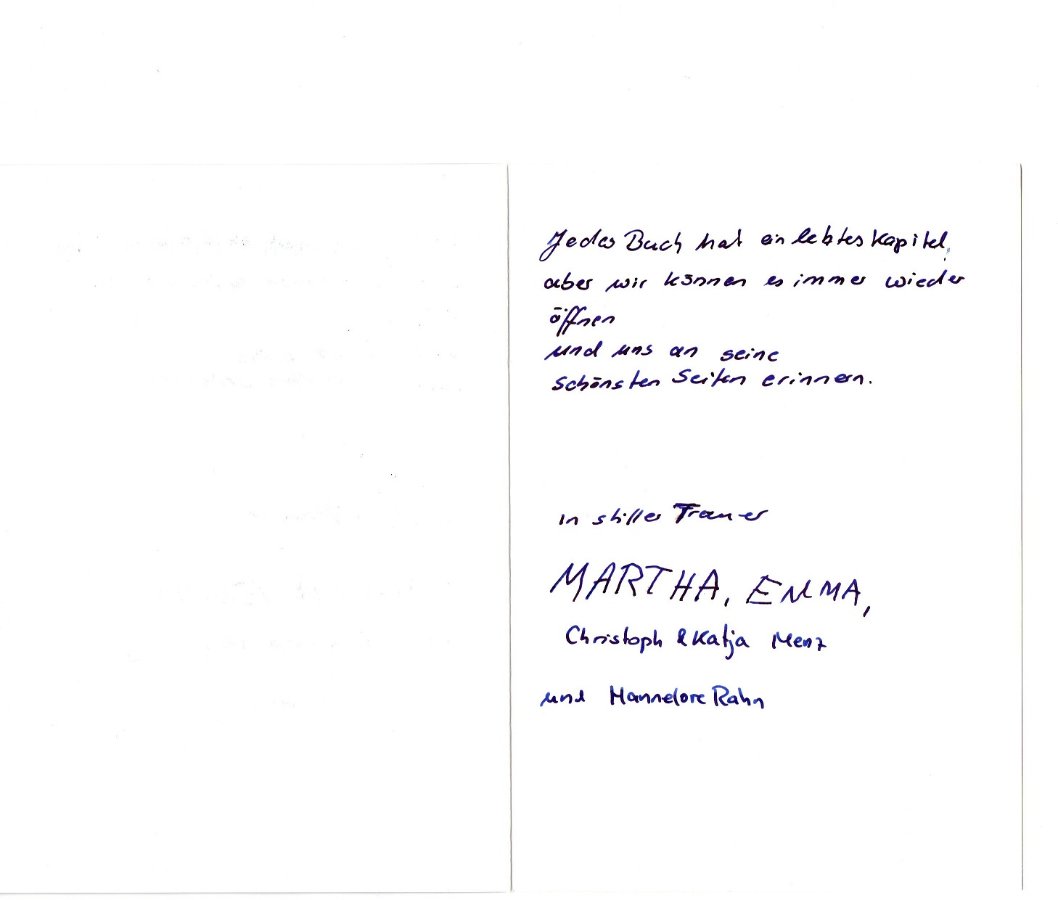 Jedes Buch hat ein letztes Kapitel,
aber wir können es immer wieder
öffnen
und uns an seine
schönsten Seiten erinnern.
in stiller Trauer
MARTHA, EMMA,
Christoph & Katja Menz
und Hannelore Rahn